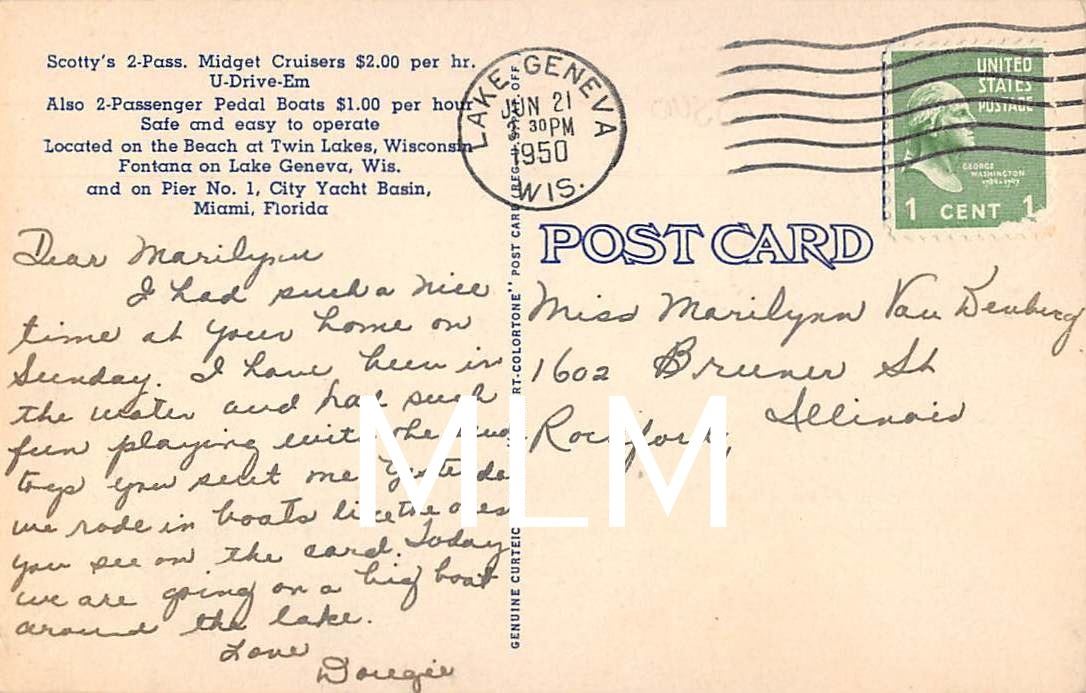 Scotty's 2-Pass. Midget Cruisers $2.00 per hr.
U-Drive-Em
Also 2-Passenger Pedal Boats $1.00 per hour
Safe and easy to operate
Located on the Beach at Twin Lakes, Wisconsin
Fontana on Lake Geneva, Wis.
and on Pier No. 1, City Yacht Basin,
Miami, Florida
LAKE GENEVA
JUN 21
30 PM
1950
WIS.
UNITED
STATES
POSTAGE
GEORGE
WASHINGTON
1789-1797
1 CENT 1
POST CARD
GENUINE CURTEICH ART-COLORTONE" POST CARD (REG. U.S. PAT. OFF.)
Dear Marilynn
I had such a nice
time at your home on
Sunday. I have been in
the water and had such
fun playing with the
toys you sent me Yesterda
we rode in boats like the ones
you see on the card. Today
we are going on a big boat
around the lake.
Love
Dougie
Miss Marilynn Van Denberg
1602 Bruner St
Rockford, Illinois
MLM